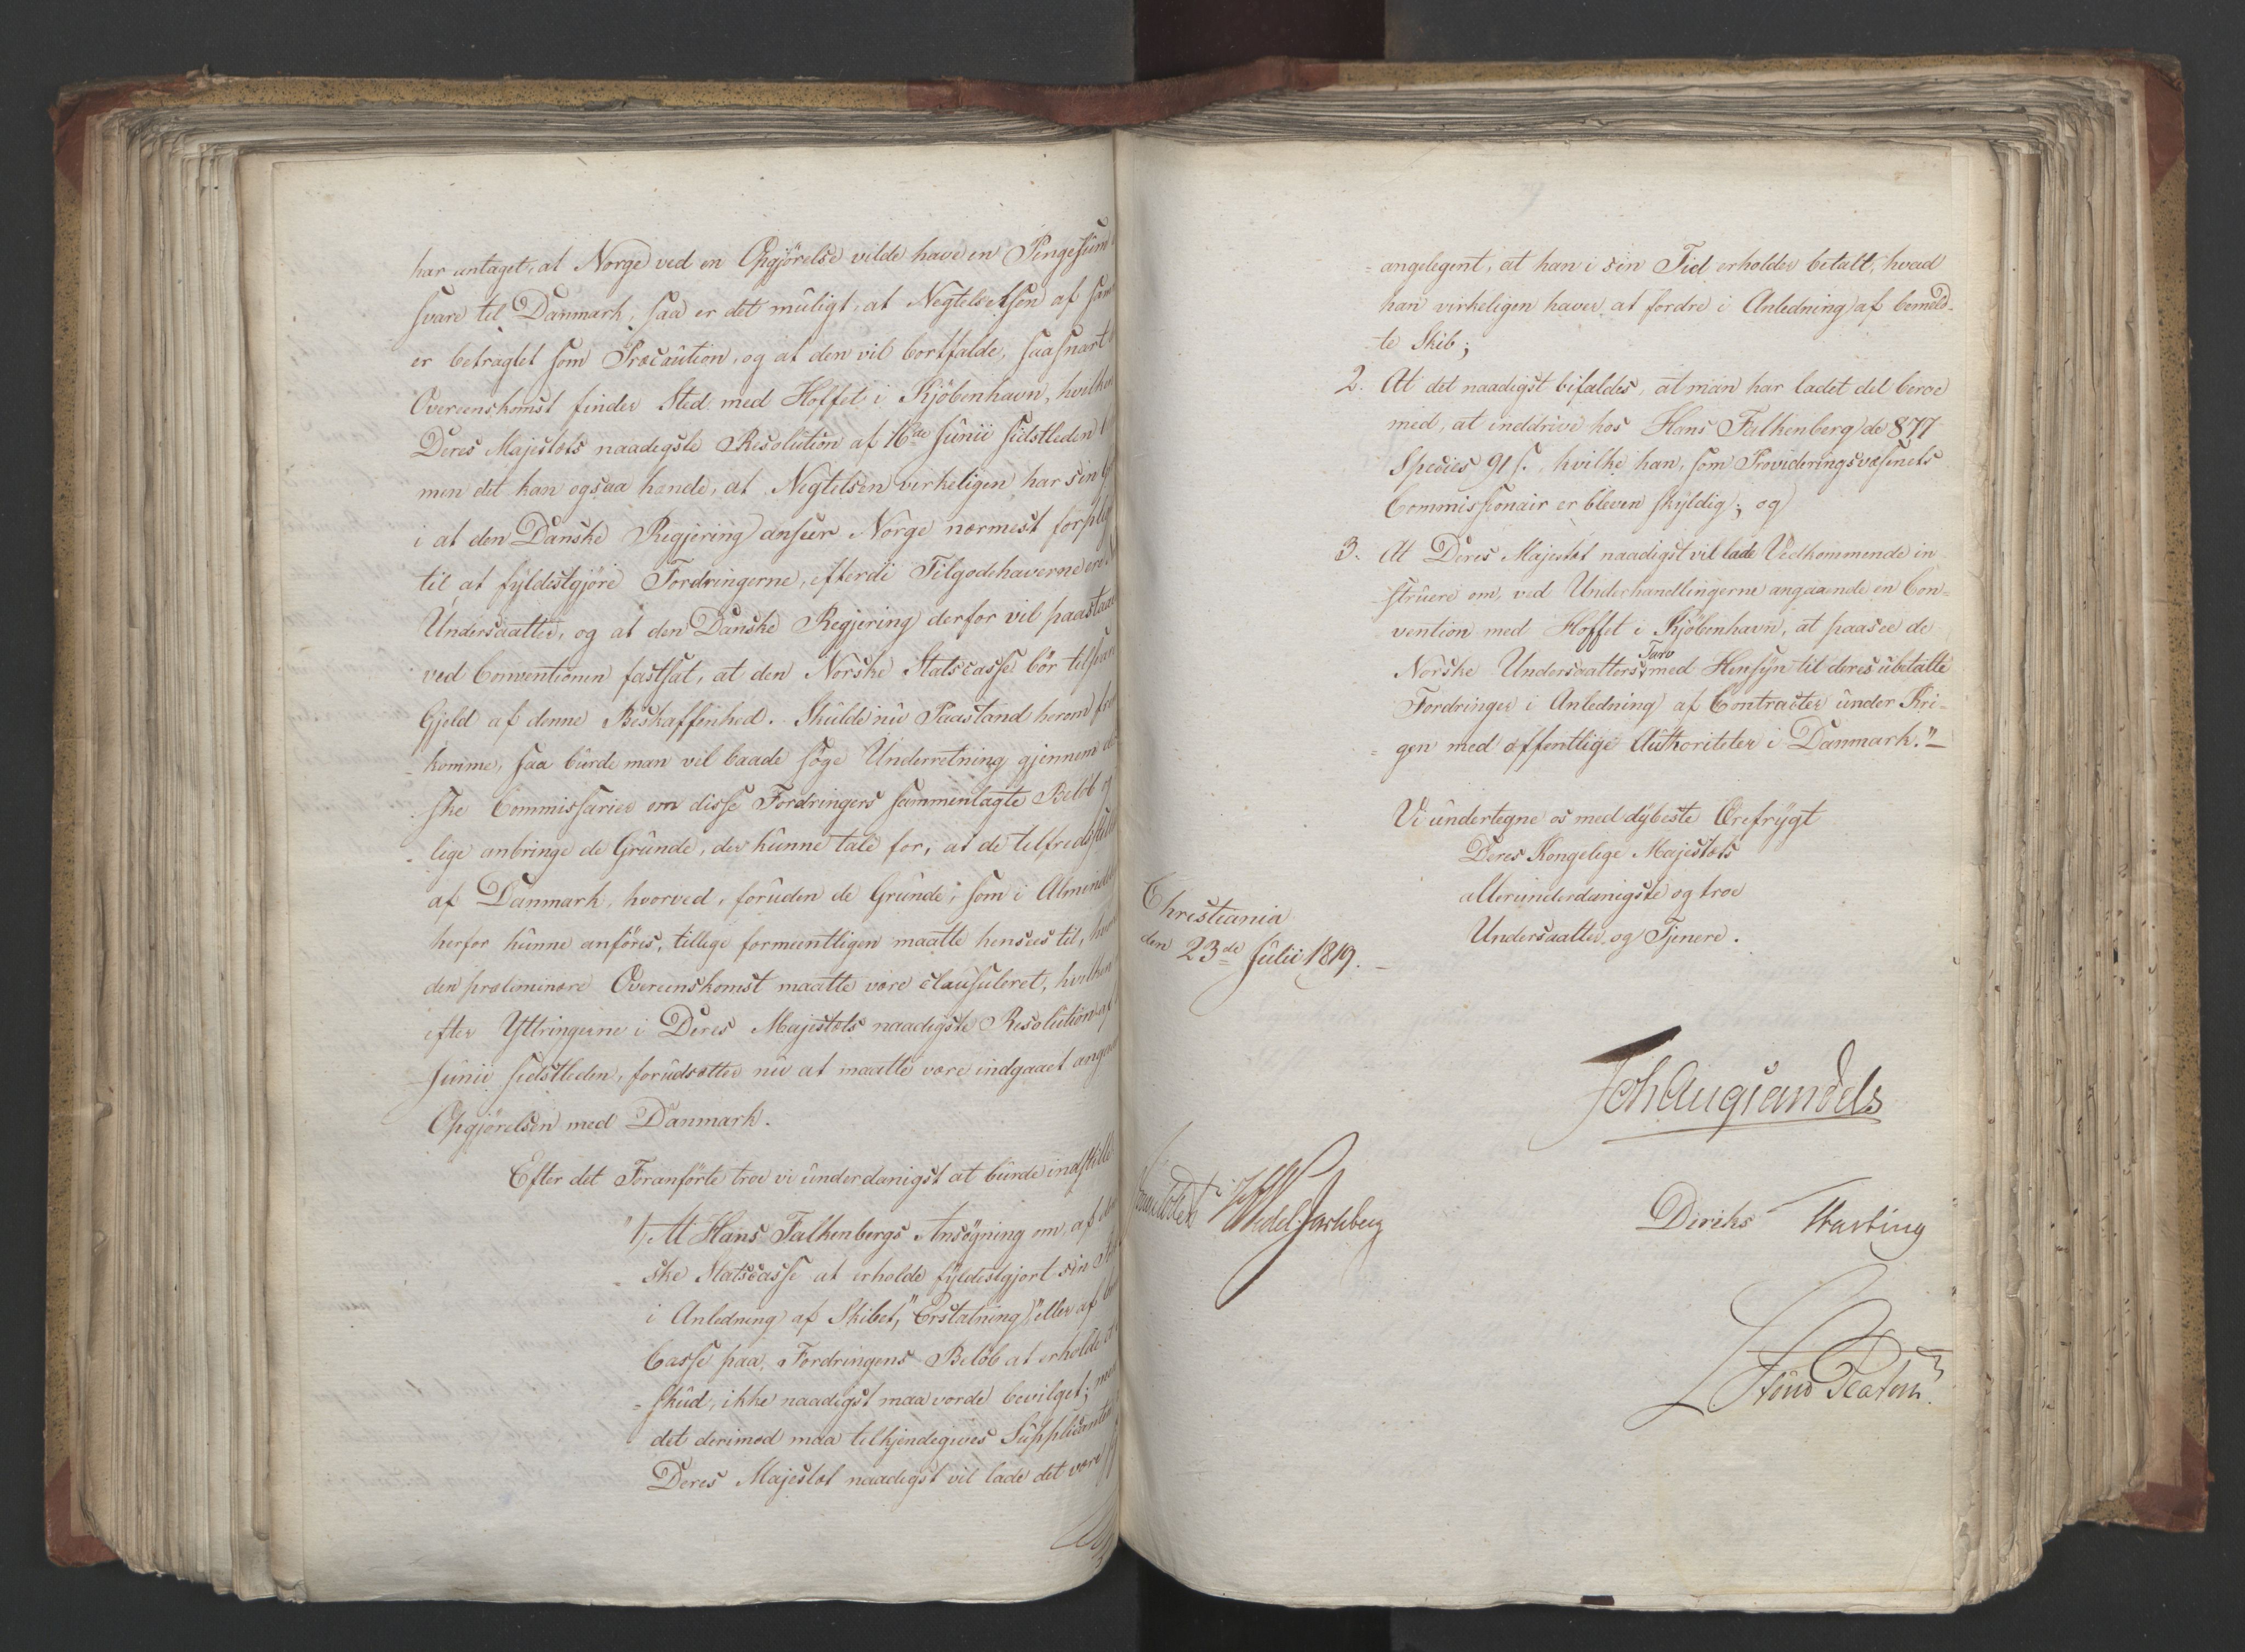 har antaget, at Norge ved en Opgjörelse vilde have en Pengesum
svare til Danmark, saa er det muligt, at Negtelsen af
er betragtet som Præcaution, og at den vil bortfalde, saasnart
Overeenskomst finder Sted med Hoffet i Kjöbenhavn, hvilken
Deres Majestæts naadigste Resolution af 16de Junii sidstleden
men det kan ogsaa hænde, at Negtelsen virkeligen har sin
i at den Danske Regjering anseer Norge nærmest
til at fyldestgjöre Fordringerne, efterdi Tilgodehaverne ere
Undersaatter, og at den Danske Regjering derfor vil paastaae
ved Conventionen fastsat, at den Norske Statscasse bör
Gjeld af denne Beskaffenhed. Skulde nu Paastand herom
komme, saa burde man vel baade söge Underretning gjennem
ske Commissarier om disse Fordringers sammenlagte Belöb og
lige anbringe de Grunde, der kunne tale for, at de
af Danmark, hvorved, foruden de Grunde, som i
herfor kunne anföres, tillige formeentligen maatte hensees til,
den præliminære Overeenskomst maatte være clausuleret, hvilken
efter Yttringerne i Deres Majestæts naadigste Resolution af
Junii sidstleden, forudsætter nu at maatte være indgaaet
Opgjörelsen med Danmark.
Efter det Foranförte troe vi underdanigst at burde indstille
"1, At Hans Falkenbergs Ansögning om, af
ske Statscasse at erholde fyldestgjort sin
i Anledning af Skibet, "Erstatning" eller af
Casse paa Fordringens Belöb at erholde
skud, ikke naadigst maa vorde bevilget;
det derimod maa tilkjendegives Supplicanten
Deres Majestæt naadigst vil lade det være
angelegent, at han i sin Tid erholder betalt, hvad
han virkeligen haver at fordre i Anledning af bemeld-
te Skib;
2. At det naadigst bifaldes, at man har ladet det beroe
med, at inddrive hos Hans Falkenberg de 877
Species 91 s., hvilke han, som Provideringsvæsenets
Commissionair er bleven skyldig; og
3. At Deres Majestæt naadigst vil lade Vedkommende in
struere om, ved Underhandlingerne angaaende en Con=
vention med Hoffet i Kjöbenhavn, at paasee de
Norske Undersaatters Tarv med Hensyn til deres ubetalte
Fordringer i Anledning af Contracter under Kri=
gen med offentlige Authoriteter i Danmark."
Vi undertegne os med dybeste Ærefrygt
Deres Kongelige Majestæts
allerunderdanigste og troe
Undersaatter og Tjenere.
Christiania
den 23de Julii 1819.
Joh Aug Sandels
Wedel Jarlsberg
Diriks